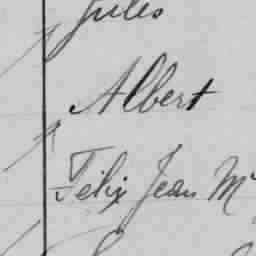 Jules
Albert
Félix Jean M